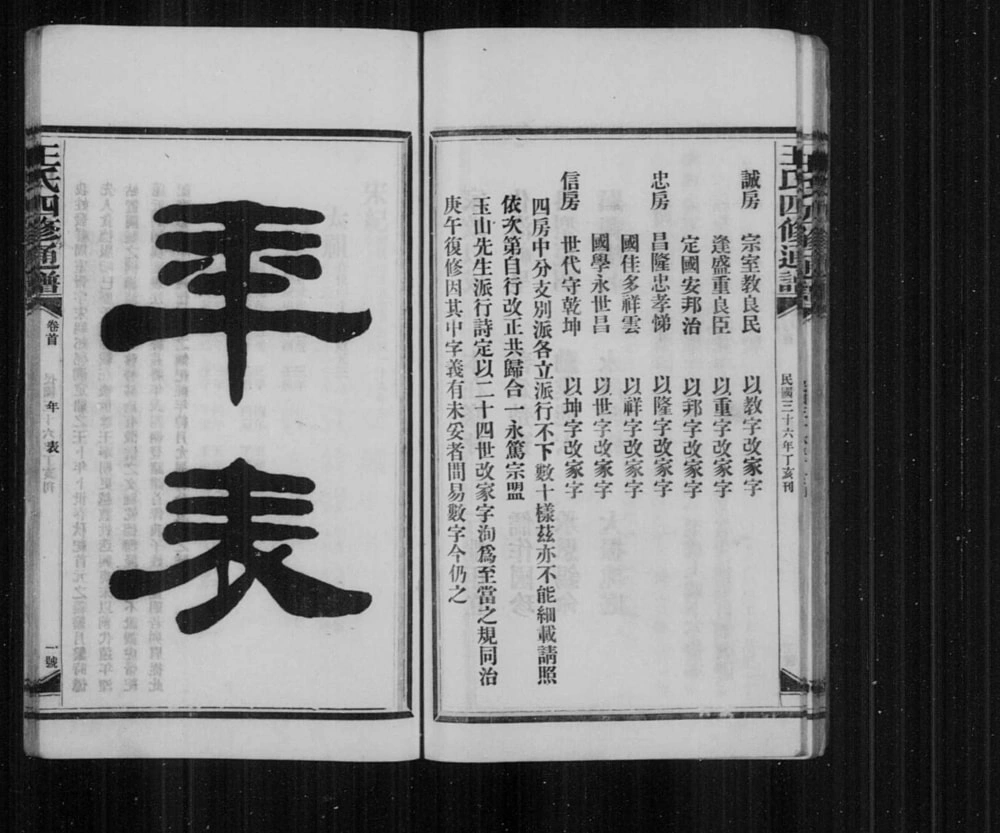 王氏四修通譜
民國三十六年丁亥刊
誠房 宗室教良民 以教字改家字
逢盛重良臣 以重字改家字
定國安邦治 以邦字改家字
忠房 昌隆忠孝悌 以隆字改家字
國佳多祥雲 以祥字改家字
國學永世昌 以世字改家字
信房 世代守乾坤 以坤字改家字
四房中分支別派各立派行不下數十樣茲亦不能細載請照
依次第自行改正共歸合一永篤宗盟
玉山先生派行詩定以二十四世改家字洵為至當之規同治
庚午復修因其中字義有未妥者間易數字今仍之
年表
王氏四修通譜
卷首
年表
一號